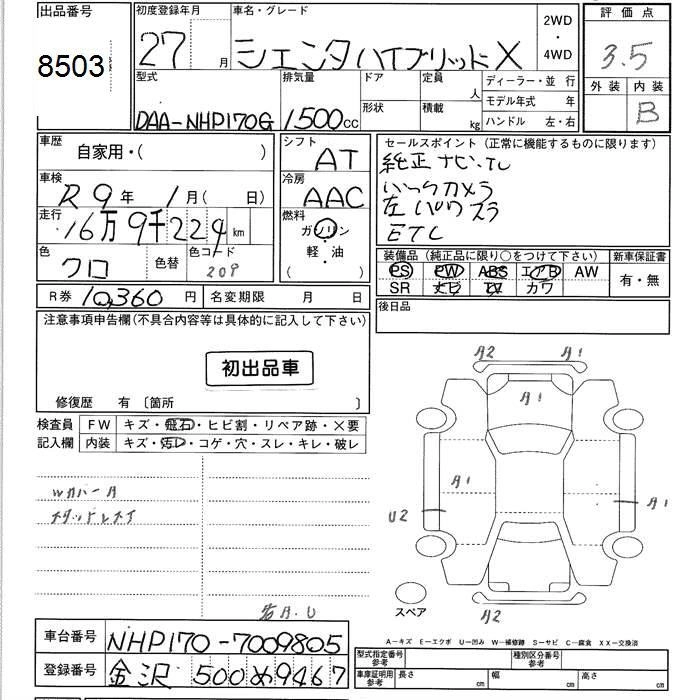 出品番号
8503
初度登録年月
27 月
車名・グレード
シエンタ ハイブリッド X
2WD
・
4WD
評価点
3.5
外装 内装
B
型式
DAA-NHP170G
排気量
1500cc
ドア
形状
定員
人
積載
kg
ディーラー・並 行
モデル年式 年
ハンドル 左・右
車歴
自家用・( )
シフト
AT
車検
R9年 1月( 日)
冷房
AAC
走行
16万9千224km
燃料
ガソリン
軽・油
( )
色
クロ
色替
色コード
209
R券 10,360 円
名変期限 月 日
セールスポイント(正常に機能するものに限ります)
純正ナビ・TV
バックカメラ
左パワスラ
ETC
装備品(純正品に限り○をつけて下さい)
PS PW ABS エアB AW
SR ナビ TV カワ
新車保証書
有・無
後日品
注意事項申告欄(不具合内容等は具体的に記入して下さい)
初出品車
修復歴 有〔箇所 〕
検査員
記入欄
FW キズ・飛石・ヒビ割・リペア跡・×要
内装 キズ・汚レ・コゲ・穴・スレ・キレ・破レ
Wカバー A
A2 A1
A1
A1
U2
A1
A2
スペア
A-キズ E-エクボ U-凹み W-補修跡 S-サビ C-腐食 XX-交換済
車台番号 NHP170-7009805
登録番号 金沢 500 め9467
型式指定番号
参考
種別区分番号
参考
車庫証明用
参考
長さ cm 幅 cm 高さ cm